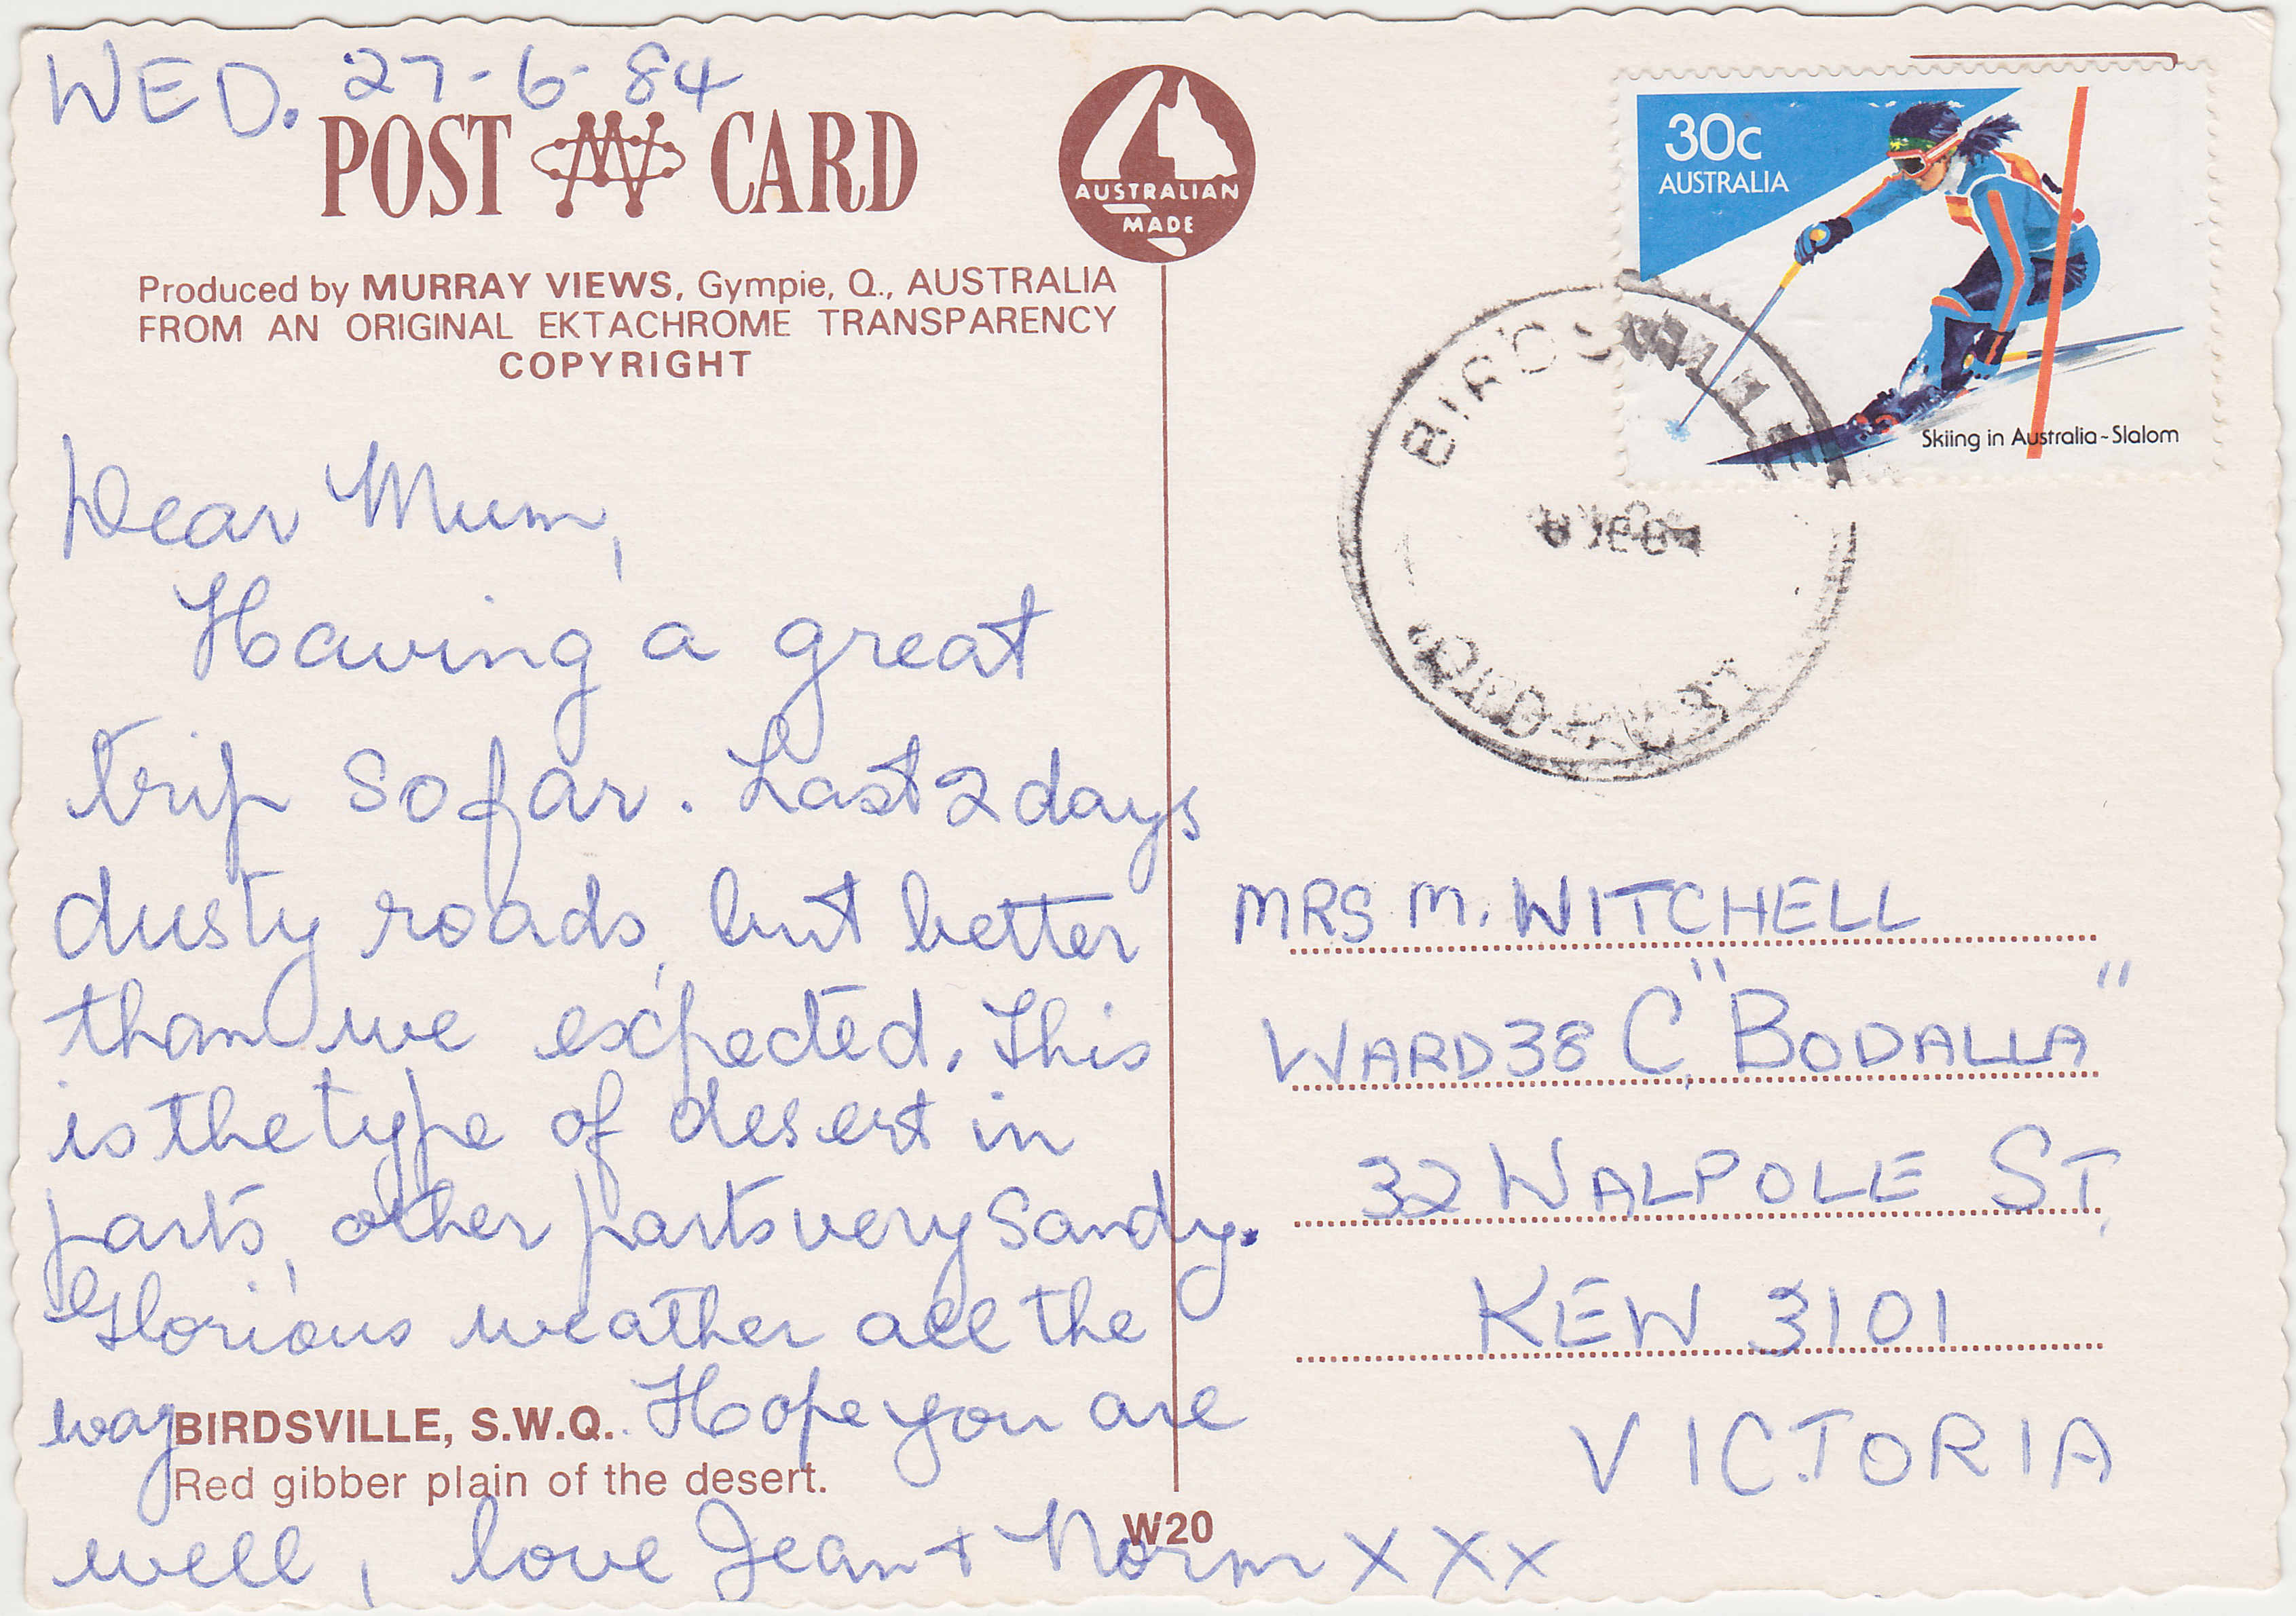 WED. 27-6-84
POST CARD
AUSTRALIAN
MADE
Produced by MURRAY VIEWS, Gympie, Q., AUSTRALIA
FROM AN ORIGINAL EKTACHROME TRANSPARENCY
COPYRIGHT
Dear Mum,
Having a great
trip so far. Last 2 days
dusty roads, but better
than we expected. This
is the type of desert in
parts, other parts very sandy.
Glorious weather all the
way. Hope you are
BIRDSVILLE, S.W.Q.
Red gibber plain of the desert.
well, love Jean + Norm x x x
W20
30c
AUSTRALIA
Skiing in Australia~Slalom
BIRDSVILLE
MRS M. WITCHELL
WARD 38 C, "BODALLA"
32 WALPOLE ST,
KEW 3101
VICTORIA